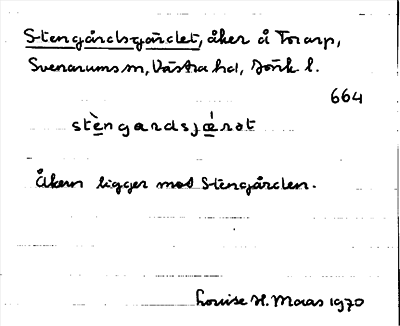 Stengårdsgärdet, åker å Torarp,
Svenarums sn, Västra hd, Jönk l.
664
stèngardsjǽrət
Åkern ligger mot Stengården.
Louise H. Maas 1970